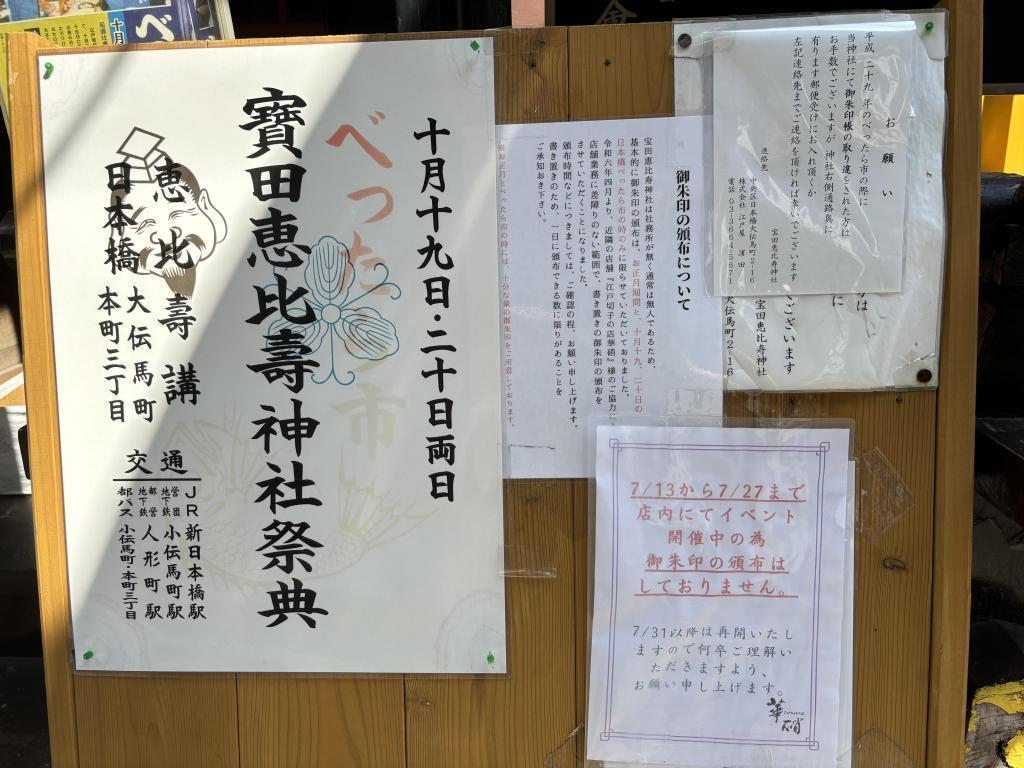 十月十九日・二十日両日
べったら市
寶田恵比壽神社祭典
恵比壽講
日本橋
大伝馬町
本町三丁目
交通
JR新日本橋駅
営団地下鉄 小伝馬町駅
都営地下鉄 人形町駅
都バス 小伝馬町・本町三丁目
御朱印の頒布について
宝田恵比寿神社は社務所が無く通常は無人であるため、
基本的に御朱印の頒布は、お正月期間と、十月十九、二十日の
日本橋べったら市の時のみに限らせていただいておりました。
令和六年四月より、近隣の店舗『江戸切子の店華硝』様のご協力に
店舗業務に差障りのない範囲で、書き置きの御朱印の頒布を
させていただくことになりました。
頒布時間などにつきましては、ご確認の程、お願い申し上げます。
書き置きのため、一日に頒布できる数に限りがあることを
ご承知おき下さい。
※お正月とべったら市の時には、十分な量の御朱印をご用意しております。
お願い
平成二十九年のべったら市の際に
当神社にて御朱印帳の取り違をされた方は
お手数でございますが神社右側通路奥に
有ります郵便受けにお入れ頂くか
左記連絡先までご連絡を頂ければ幸いでございます
宝田恵比寿神社
連絡先
中央区日本橋大伝馬町2-16
株式会社 江戸屋 濱田
電話 03-3664-5671
は
に
ございます
宝田恵比寿神社
大伝馬町2-16
7/13から7/27まで
店内にてイベント
開催中の為
御朱印の頒布は
しておりません。
7/31以降は再開いたし
ますので何卒ご理解い
ただきますよう、
お願い申し上げます。
華硝